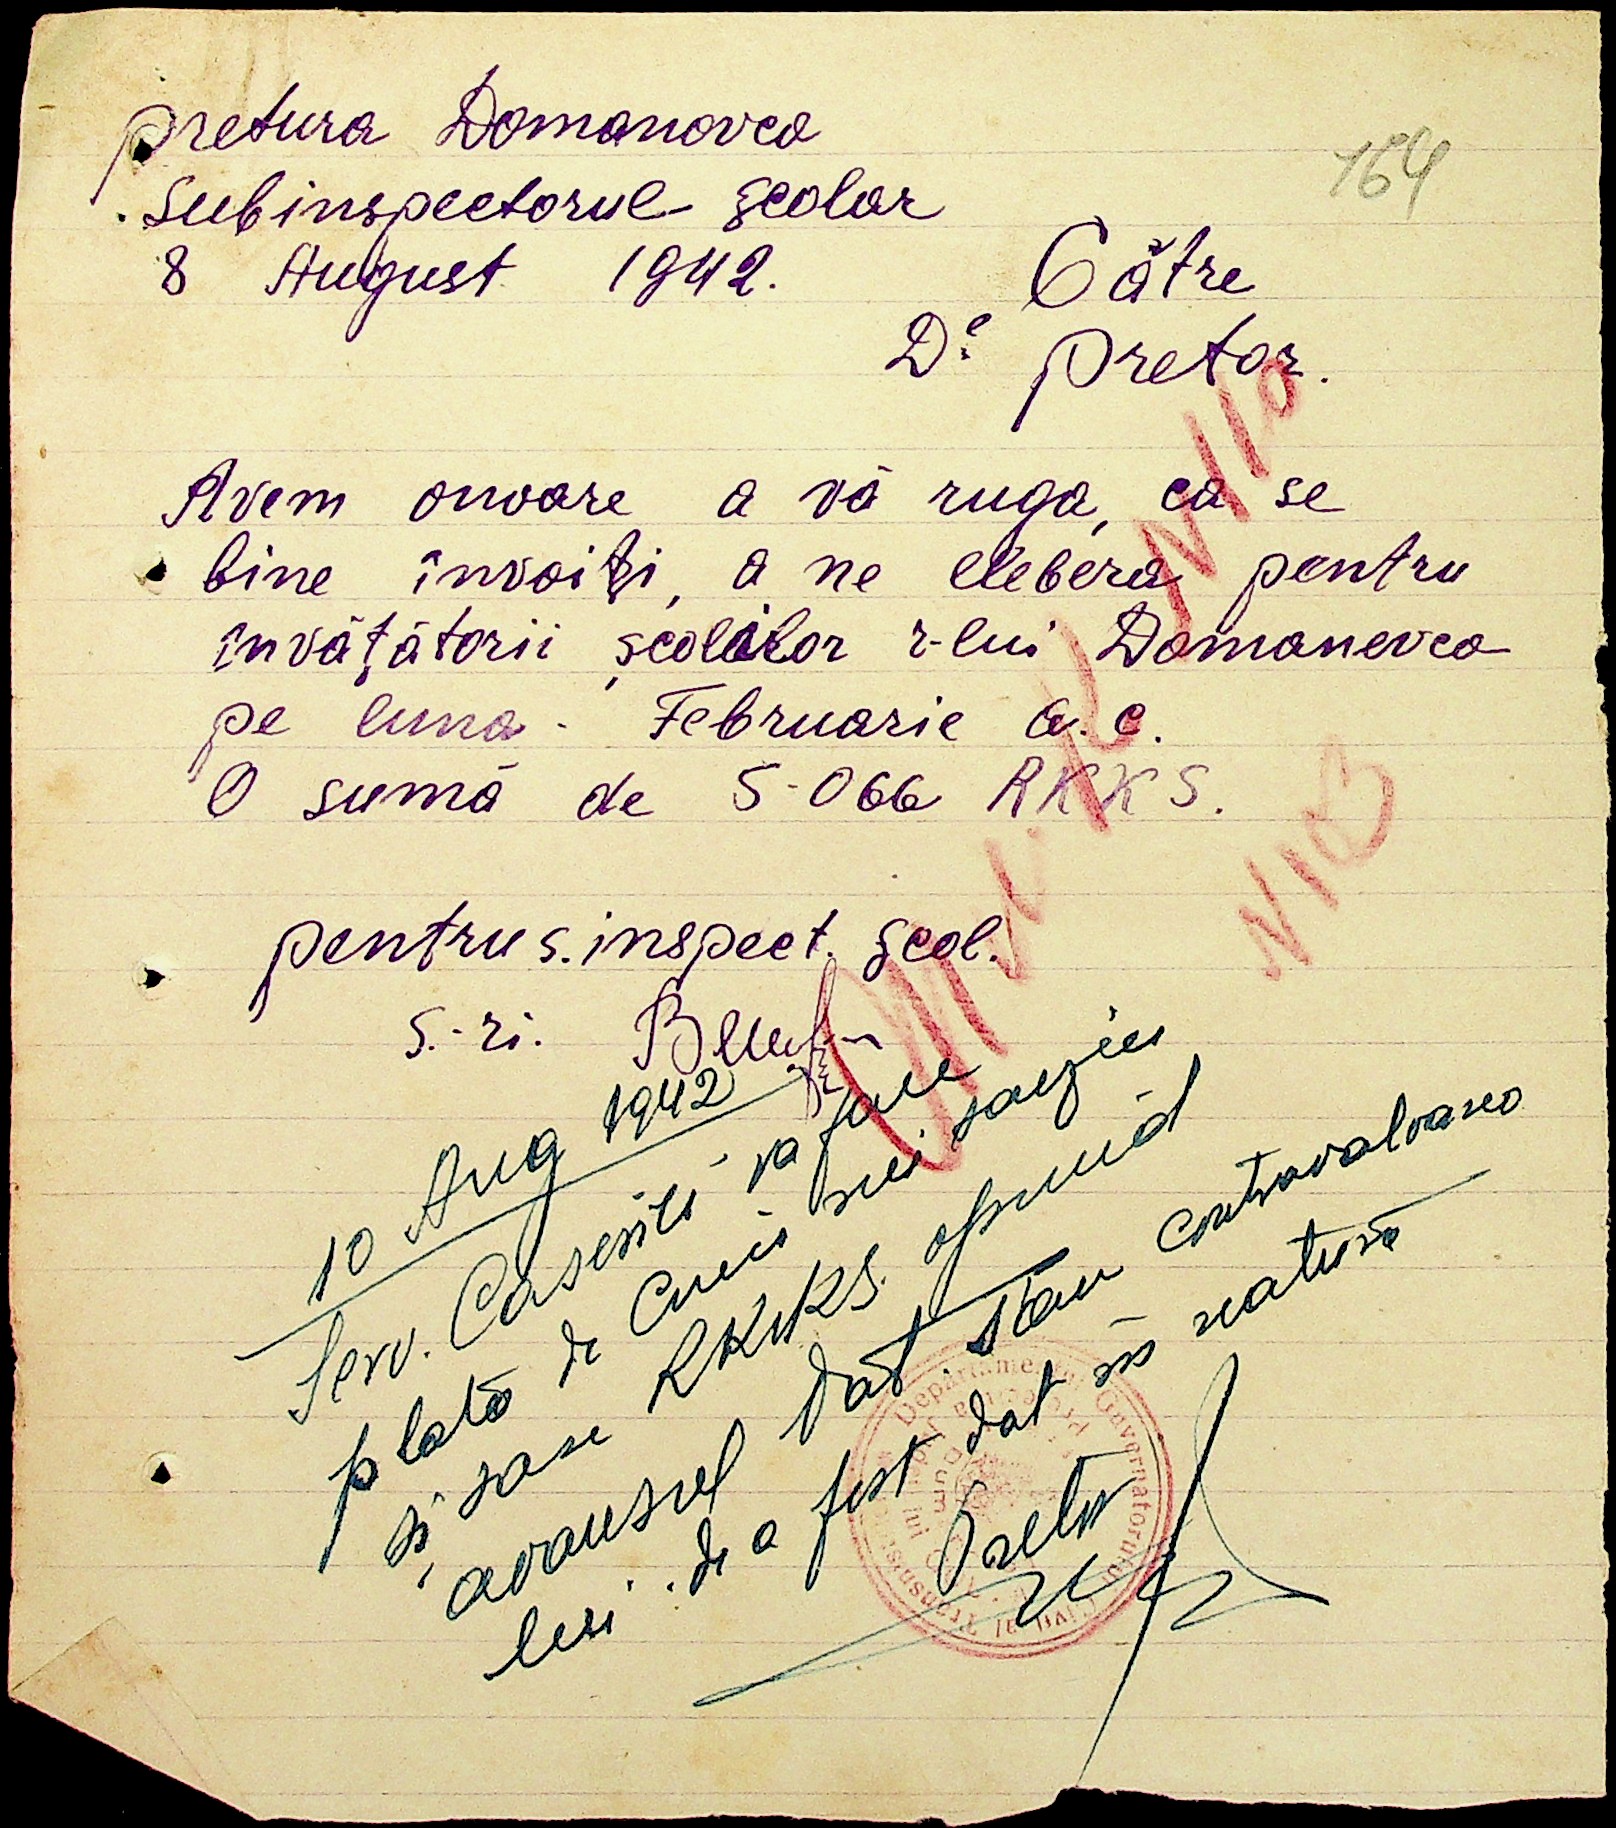 pretura Domanovca
Subinspectorul școlar
8 August 1942.
164
Către
Dl pretor.
Avem onoare a vă ruga, ca se
bine învoiți, a ne elebera pentru
învățătorii școlilor r-lui Domanevca
pe luna Februarie a.c.
O sumă de 5-066 RKKS.
pentru s. inspect. școl.
s.-ri.
10 Aug 1942
Serv. Casieriei va face
plata de Cinci mii șaizeci
și șase RKKS. oprind
avansul dat sau contravaloarea
lui de a fost dat în natură
Pretor
Departamentul Guvernatorul Civil al Transnistriei
Prefectura Județului